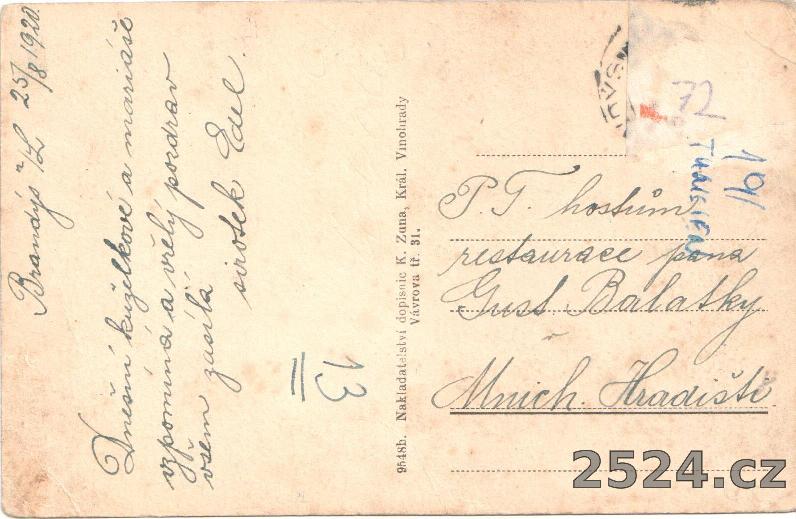 Brandýs n/L 25/8 1920.
Dnešní kuželkové a mariáše
vzpomíná a vřelý pozdrav
všem zasílá
sirotek Edel.
13
9548b. Nakladatelství dopisnic K. Zuna, Král. Vinohrady
Vávrova tř. 31.
72
19/
P. T. hostům
restaurace pana
Gust Balatky
Mnich. Hradiště
2524.cz